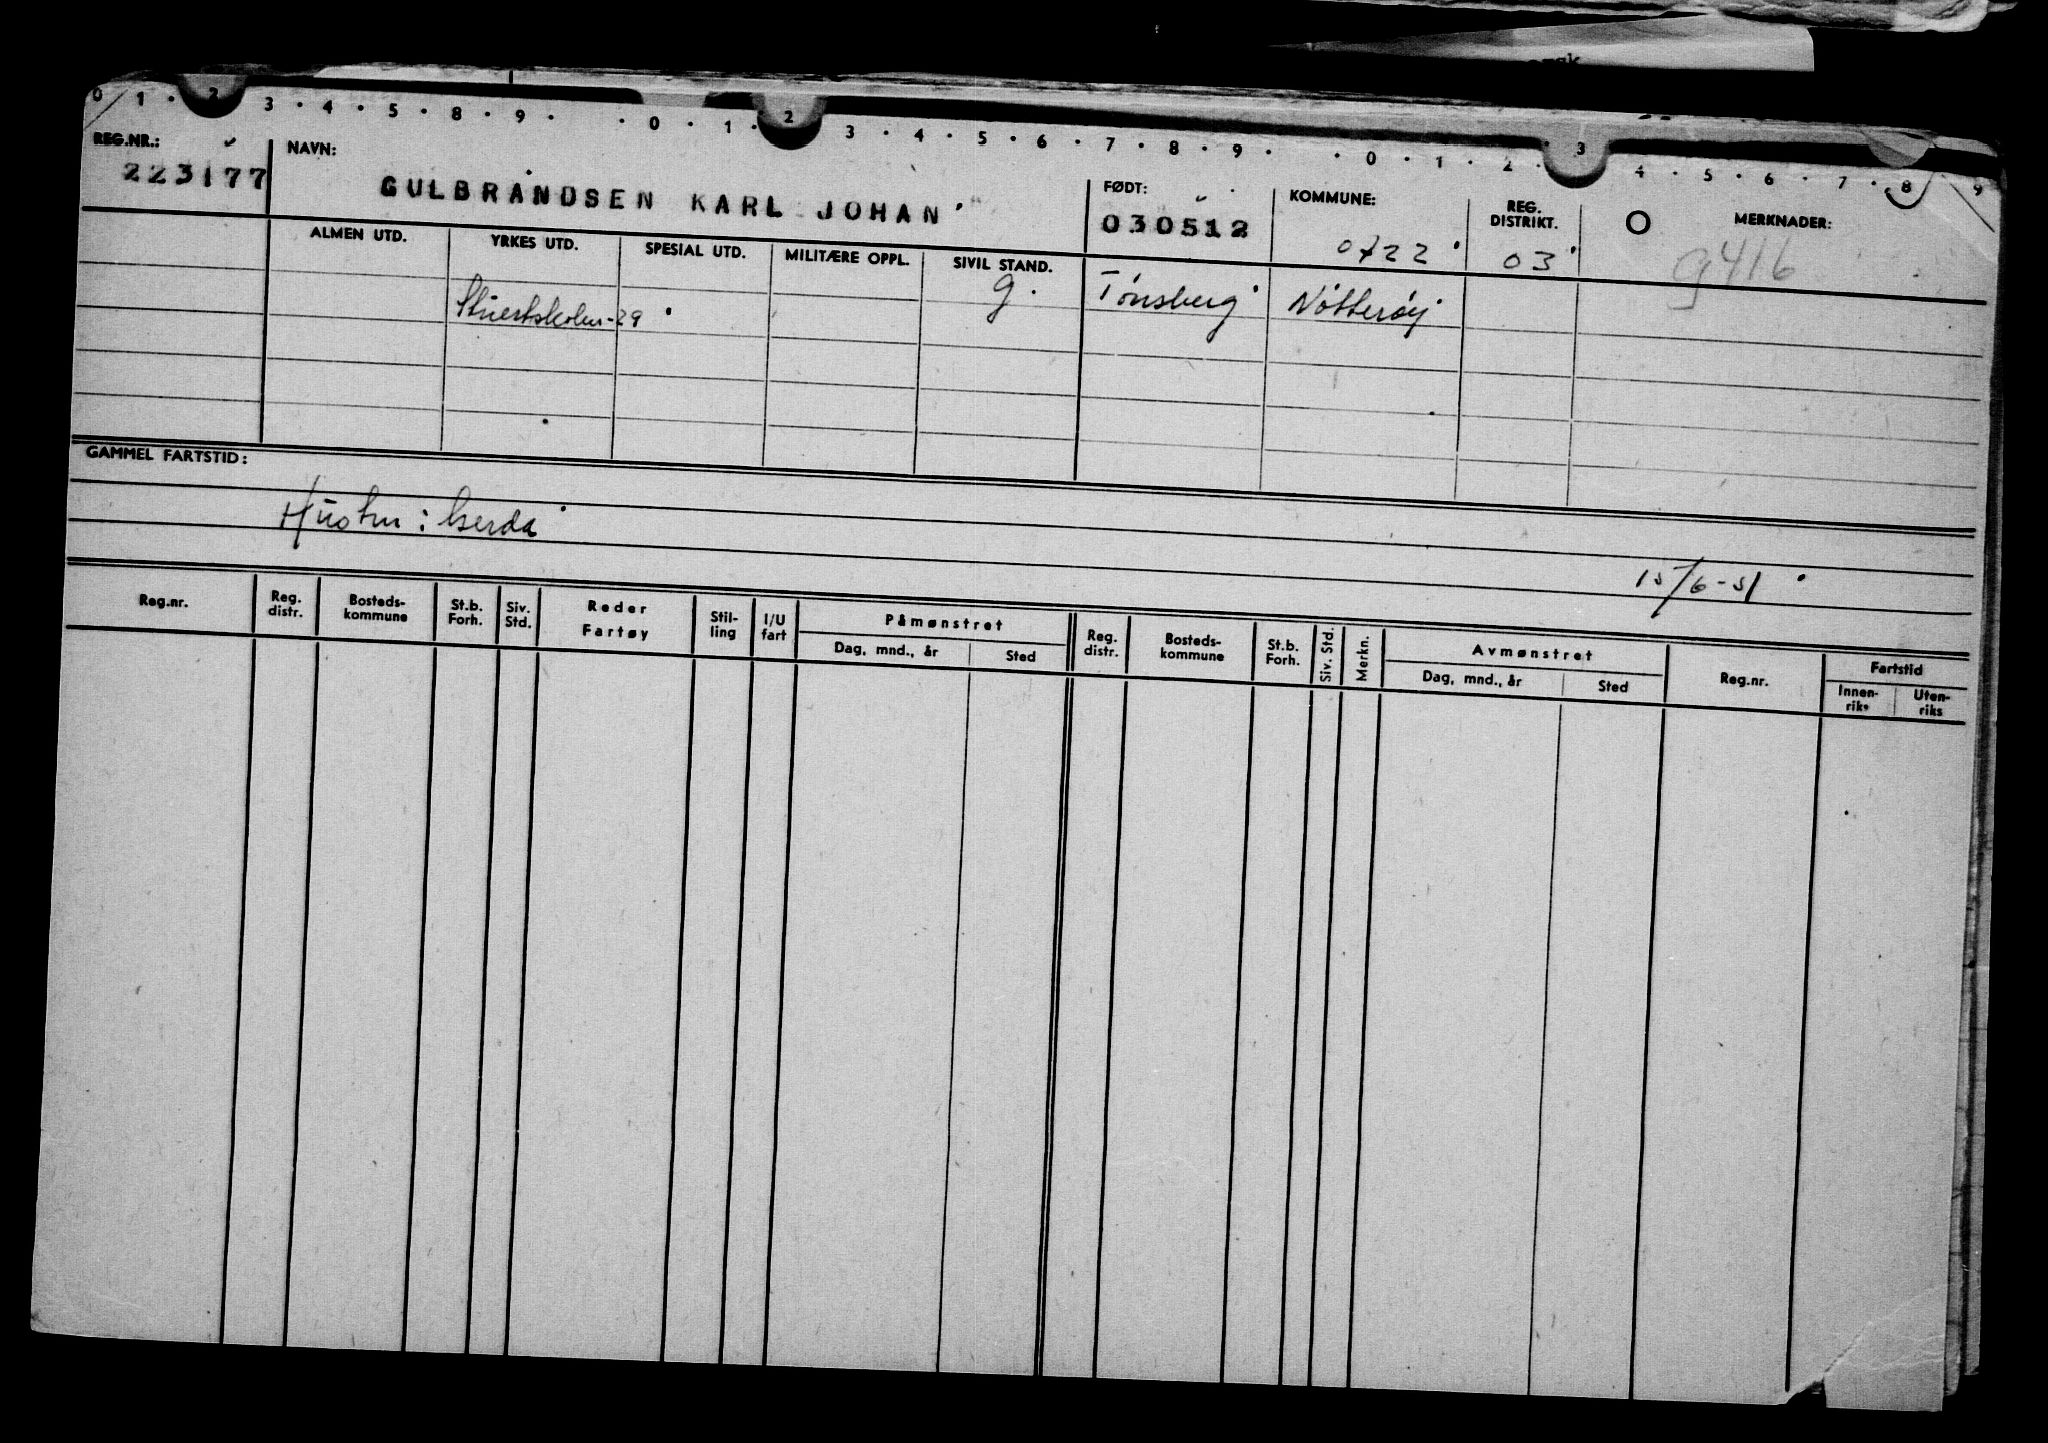 0 1 · 2 3 · 4 · 5 · 8 · 9 · · 0 · 1 · 2 3 · 4 · 5 · 6 · 7 · 8 · 9 · · 0 · 1 · 2 · 3 4 · 5 · 6 · 7 · 8 9
REG.NR.: NAVN: FØDT: KOMMUNE: REG. DISTRIKT. MERKNADER:
223177 GULBRANDSEN KARL JOHAN 030512 0722 03 9416
ALMEN UTD. YRKES UTD. SPESIAL UTD. MILITÆRE OPPL. SIVIL STAND.
Stuertskolen-29 g. Tønsberg Nøtterøy
GAMMEL FARTSTID:
Hustru: Gerda
15/6-51
Reg.nr. Reg. distr. Bosteds- kommune St.b. Forh. Siv. Std. Reder Fartøy Stil- ling I/U fart Påmønstret Dag, mnd., år Sted Reg. distr. Bosteds- kommune St.b. Forh. Siv. Std. Merkn. Avmønstret Dag, mnd., år Sted Reg.nr. Fartstid Innen- riks Uten- riks